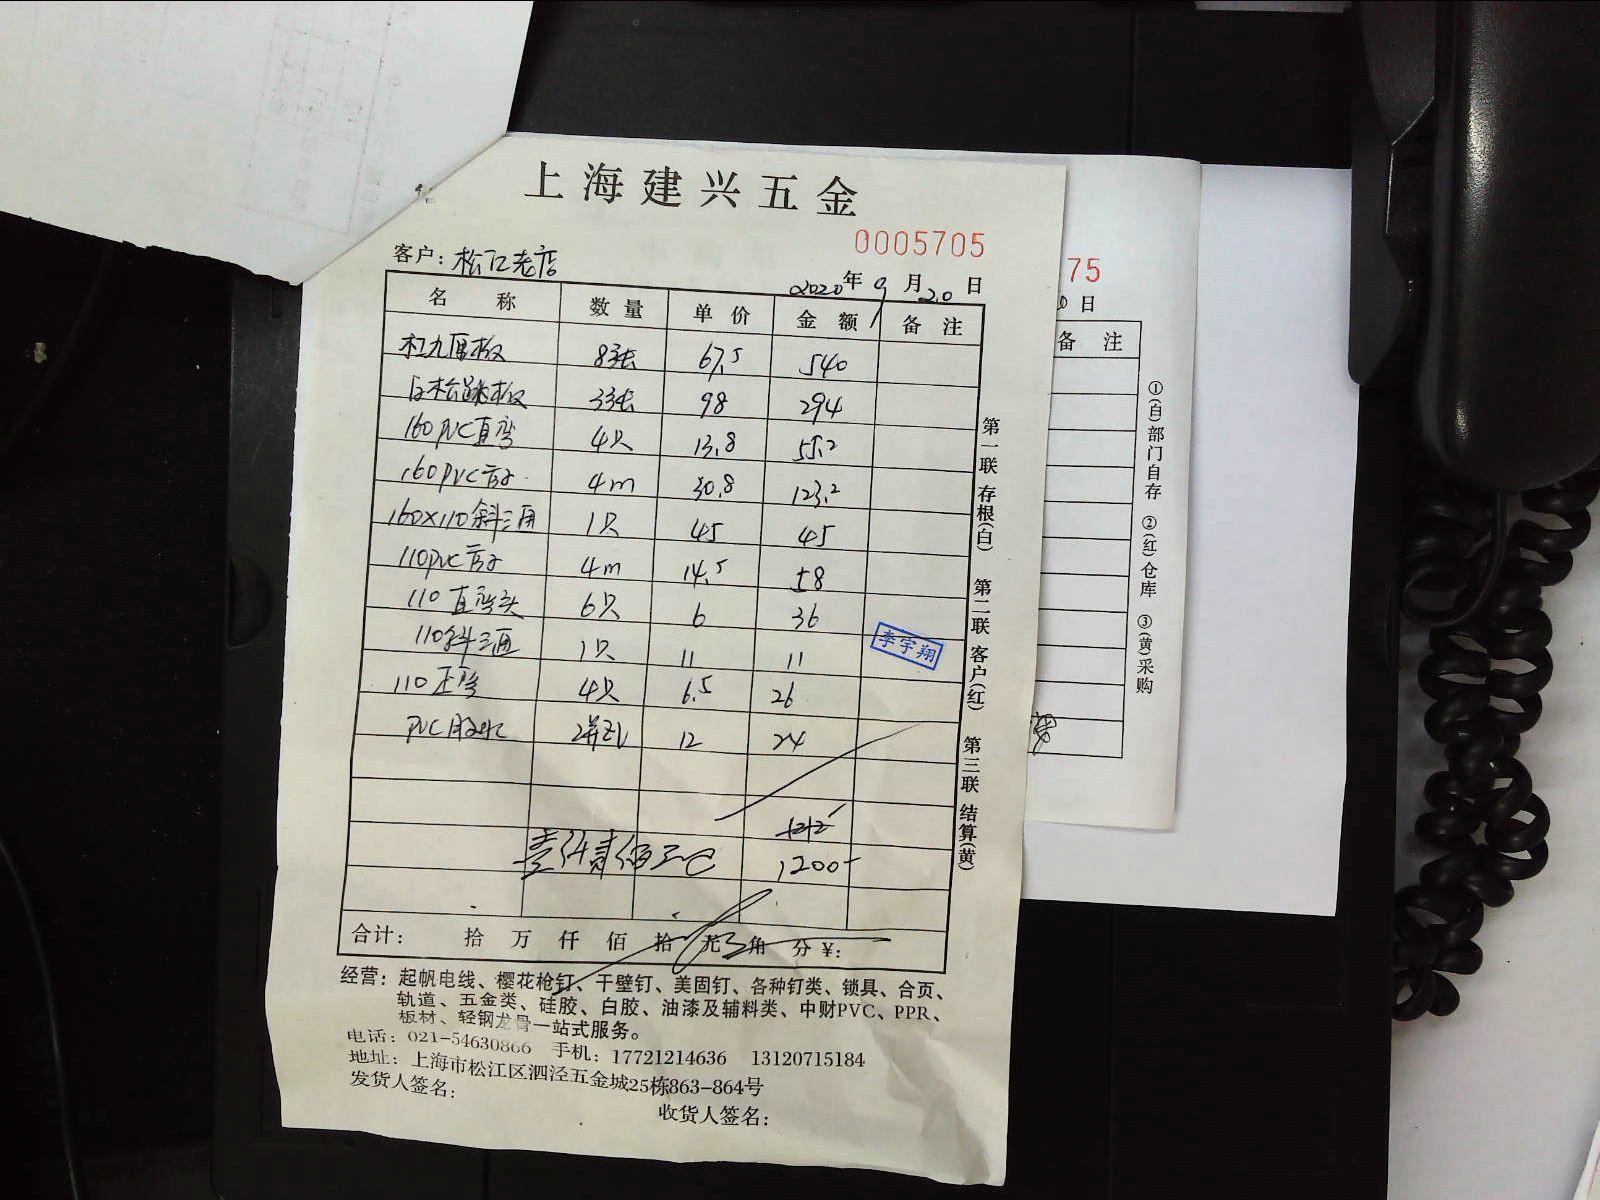 上海建兴五金
0005705
客户：松江老店
2020年9月20日
名称 数量 单价 金额 备注
杠九厘板 8张 67.5 540
白松跳板 3张 98 294
160PVC直弯 4只 13.8 55.2
160PVC 4m 30.8 123.2
160×110斜三通 1只 45 45
110PVC 4m 14.5 58
110直弯头 6只 6 36
110斜三通 1只 11 11
李宇翔
110 4只 6.5 26
PVC胶水 2瓶 12 24
1212
壹仟贰佰元 1200-
合计： 拾 万 仟 佰 拾 元 角 分 ¥:
经营：起帆电线、樱花枪钉、干壁钉、美固钉、各种钉类、锁具、合页、
轨道、五金类、硅胶、白胶、油漆及辅料类、中财PVC、PPR、
板材、轻钢龙骨一站式服务。
电话：021-54630866 手机：17721214636 13120715184
地址：上海市松江区泗泾五金城25栋863-864号
发货人签名：
收货人签名：
第一联 存根(白) 第二联 客户(红) 第三联 结算(黄)
75
日
备注
①(白)部门自存 ②(红)仓库 ③(黄)采购